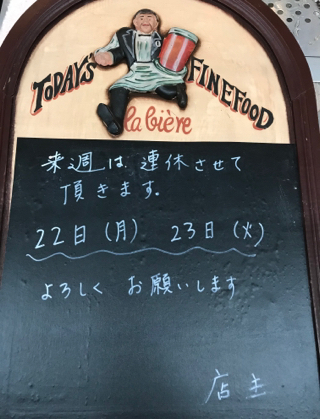 TODAY'S FINE FOOD
la bière
来週は連休させて
頂きます。
22日(月) 23日(火)
よろしく お願いします
店主